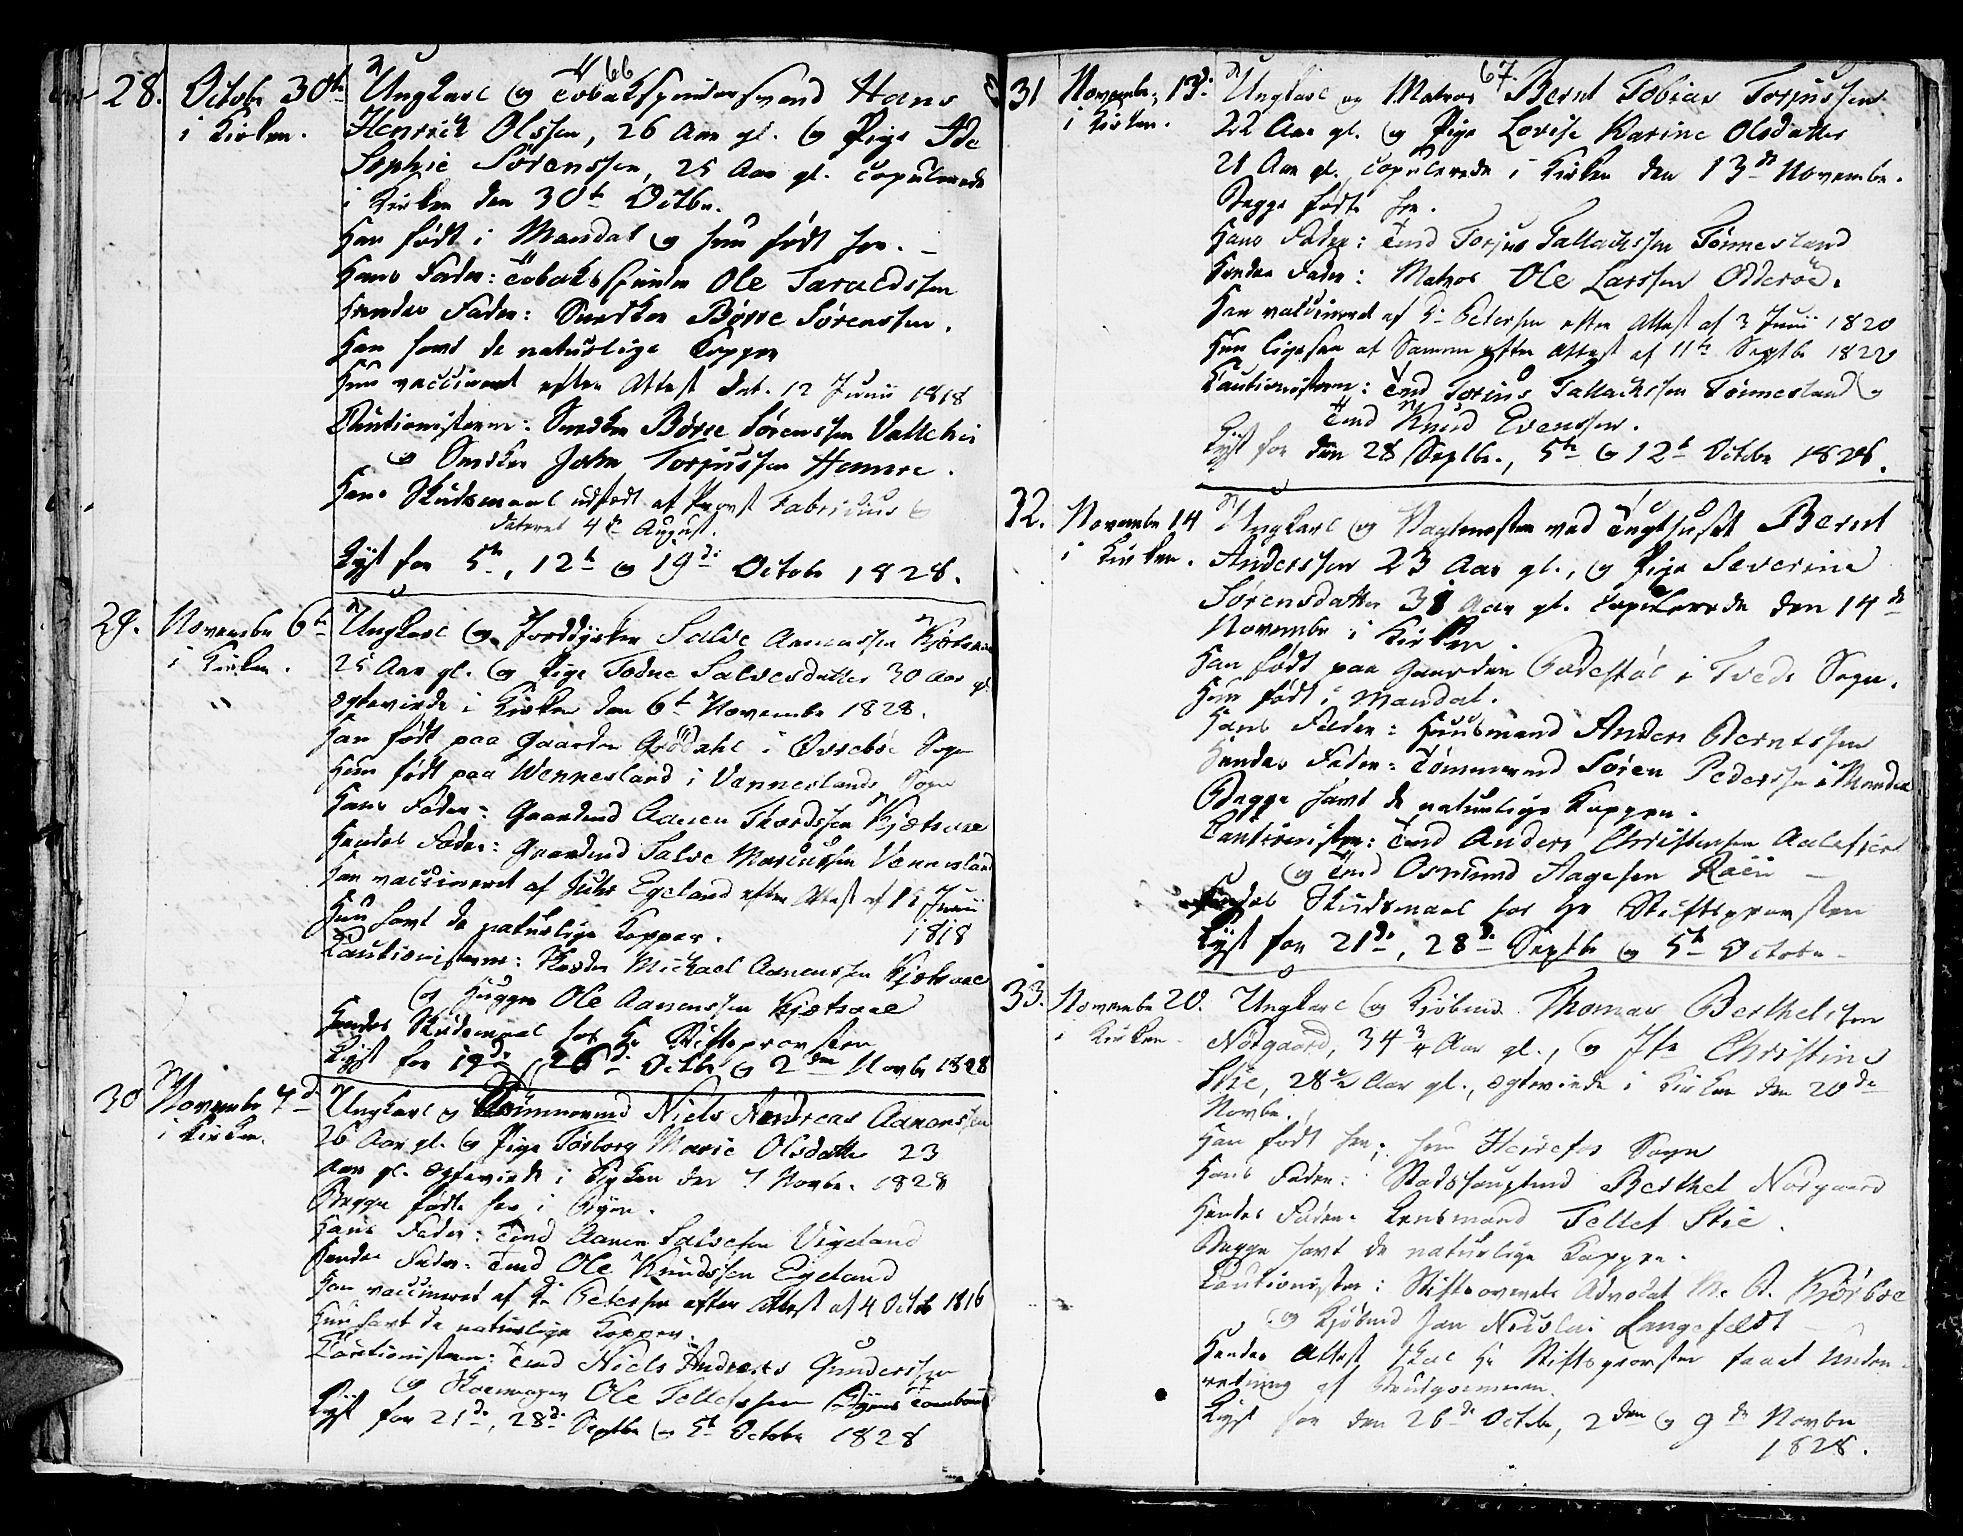 66
28. Octobr 30te
i Kirken.
Ungkarl og Tobakspindersvend Hans
Henrich Olssen, 26 Aar gl. og Pige Ide
Sophie Sørenssen, 25 Aar gl. Copulerede
i Kirken den 30te Octbr.
Han født i Mandal og hun født her.
Hans Fader: Tobakspinder Ole Taraldssen
Hendes Fader: Snedker Børre Sørenssen.
Han havt de naturlige Kopper
Hun vaccineret efter Attest dat. 12 Junii 1818
Cautionisterne: Snedker Børre Sørenssen
og Snedker John Torjussen Hamre.
Hans Skudsmaal udstædt af Provst Fabricius
dateret 4de August.
Lyst for 5te, 12te og 19de Octobr 1828.
29. Novembr 6te
i Kirken.
Ungkarl og Salve Aanenssen Kjetsaae
25 Aar gl. og Pige Todne Salvesdatter 30 Aar gl.
ægteviede i Kirken den 6te Novembr 1828.
Han født paa Gaarden i Øvrebøe Sogn
Hun født paa Wennesland i Vennesland Sogn
Hans Fader: Gaardmd Aanen Thordssen Kjetsaae
Hendes Fader: Gaardmd Salve Marcussen Vennesland
Han vaccineret af Egeland efter Attest af Junii
1818
Hun havt de naturlige Kopper.
Cautionisterne: Michael Aanenssen Kjetsaae
og Ole Aanenssen Kjetsaae
Hendes Skudsmaal hos Hr Stiftsprovsten
Lyst for 19de, 26de Octbr og 2den Novbr 1828
30 Novembr 7de
i Kirken.
Ungkarl og Tømmermd Niels Andreas Aanenssen
26 Aar gl. og Pige Torborg Marie Olsdatter 23
Aar gl. ægteviede i Kirken den 7 Novbr. 1828
Begge fødte her i Byen.
Hans Fader: Tmd Aanen Salvesen Vigeland
Hendes Fader: Tmd Ole Knudssen Egeland
Han vaccineret af Dr Petersen efter Attest af 4 Octbr 1816
Hun havt de naturlige Kopper.
Cautionisterne: Tmd Niels Andreas Gunderssen
og Ole Tellefssen
Lyst for 21de, 28de Septbr og 5te Octobr 1828
67.
31 Novembr. 13de
i Kirken.
Ungkarl og Matros Bernt Tobias Torjussen
22 Aar gl. og Pige Lovise Karine Olsdatter
21 Aar gl. Copulerede i Kirken den 13de Novembr.
Begge fødte her.
Hans Fader: Tmd Torjus Tallachssen Tønnesland
Hendes Fader: Matros Ole Larssen Odderøe.
Han vaccineret af Dr Petersen efter Attest af 3 Junii 1820
Hun ligesaa af Samme efter Attest af 11te Septbr 1822
Cautionisterne: Tmd Torjus Tallachssen Tønnesland og
Tmd Knud Evenssen.
Lyst for den 28 Septbr., 5te og 12te Octbr 1828.
32. Novembr 14
i Kirken.
Ungkarl og Vagtmester ved Tugthuset Bernt
Anderssen 23 Aar gl., og Pige Severine
Sørensdatter 31 Aar gl. Copulerede den 14de
Novembr i Kirken.
Han født paa Gaarden i Tveds Sogn.
Hun født i Mandal.
Hans Fader: Huusmand Anders Berntssen
Hendes Fader: Tømmermd Søren Pederssen i Mandal
Begge havt de naturlige Kopper.
Cautionister: Tmd Anders Christensen Aalefjer
og Tmd Osmund Aagesen Røen
Hendes Skudsmaal hos Hr Stiftsprovsten
Lyst for 21de, 28de Septbr og 5te Octobr.
33. Novembr 20.
i Kirken.
Ungkarl og Kjøbmd. Thomas Berthelssen
Nørgaard, 34 3/4 Aar gl., og Jfr Christine
Stie, 28 1/2 Aar gl., ægteviede i Kirken den 20de
Novbr.
Han født her; hun Sogn
Hans Fader: Stadshauptmd Berthel Nørgaard
Hendes Fader: Lensmand Tellef Stie.
Begge havt de naturlige Kopper.
Cautionister: Stiftsoverrets Advocat Kjørboe
og Kjøbmd Jan Nicolai Langefeldt
Hendes Attest skal Hr Stiftsprovsten faaet Under-
retning af Brudgommen.
Lyst for den 26de Octbr, 2den og 9de Novbr
1828.